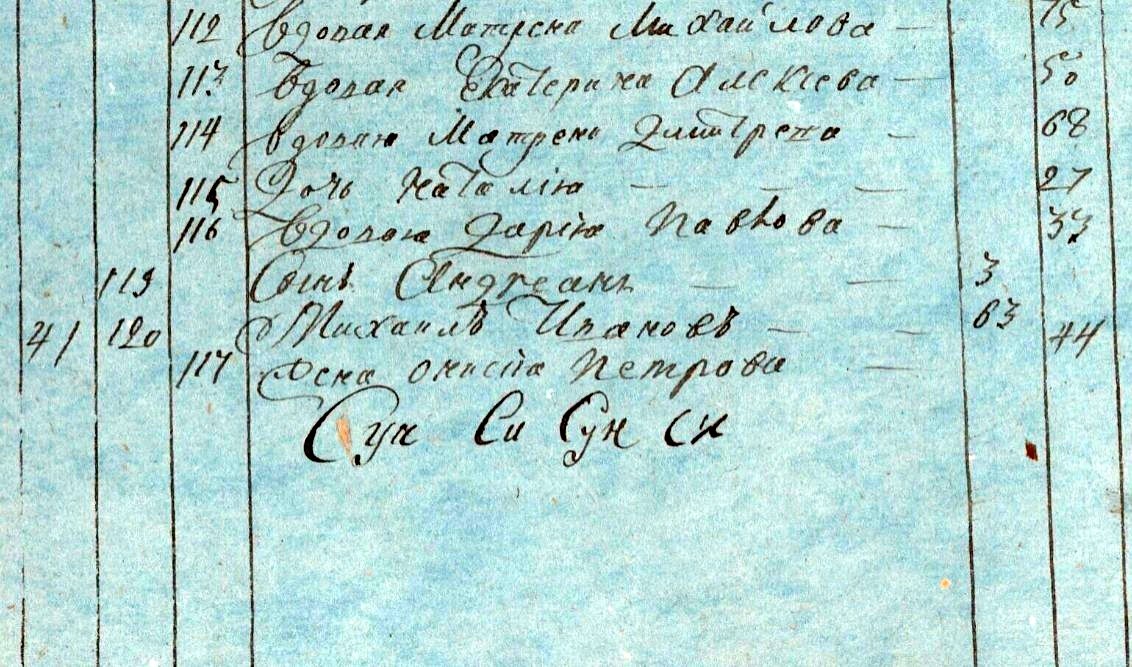 112 Вдовая Матрена Михайлова — 75
113 Вдовая Екатерина Алексіева — 50
114 Вдовая Матрена — 68
115 Дочь Наталія — — — 27
116 Вдовая Дарія Павлова — 33
119 Сынъ Андреанъ — — 3
41 120 Михаилъ Ивановъ — — 63
117 Жена Петрова — 44